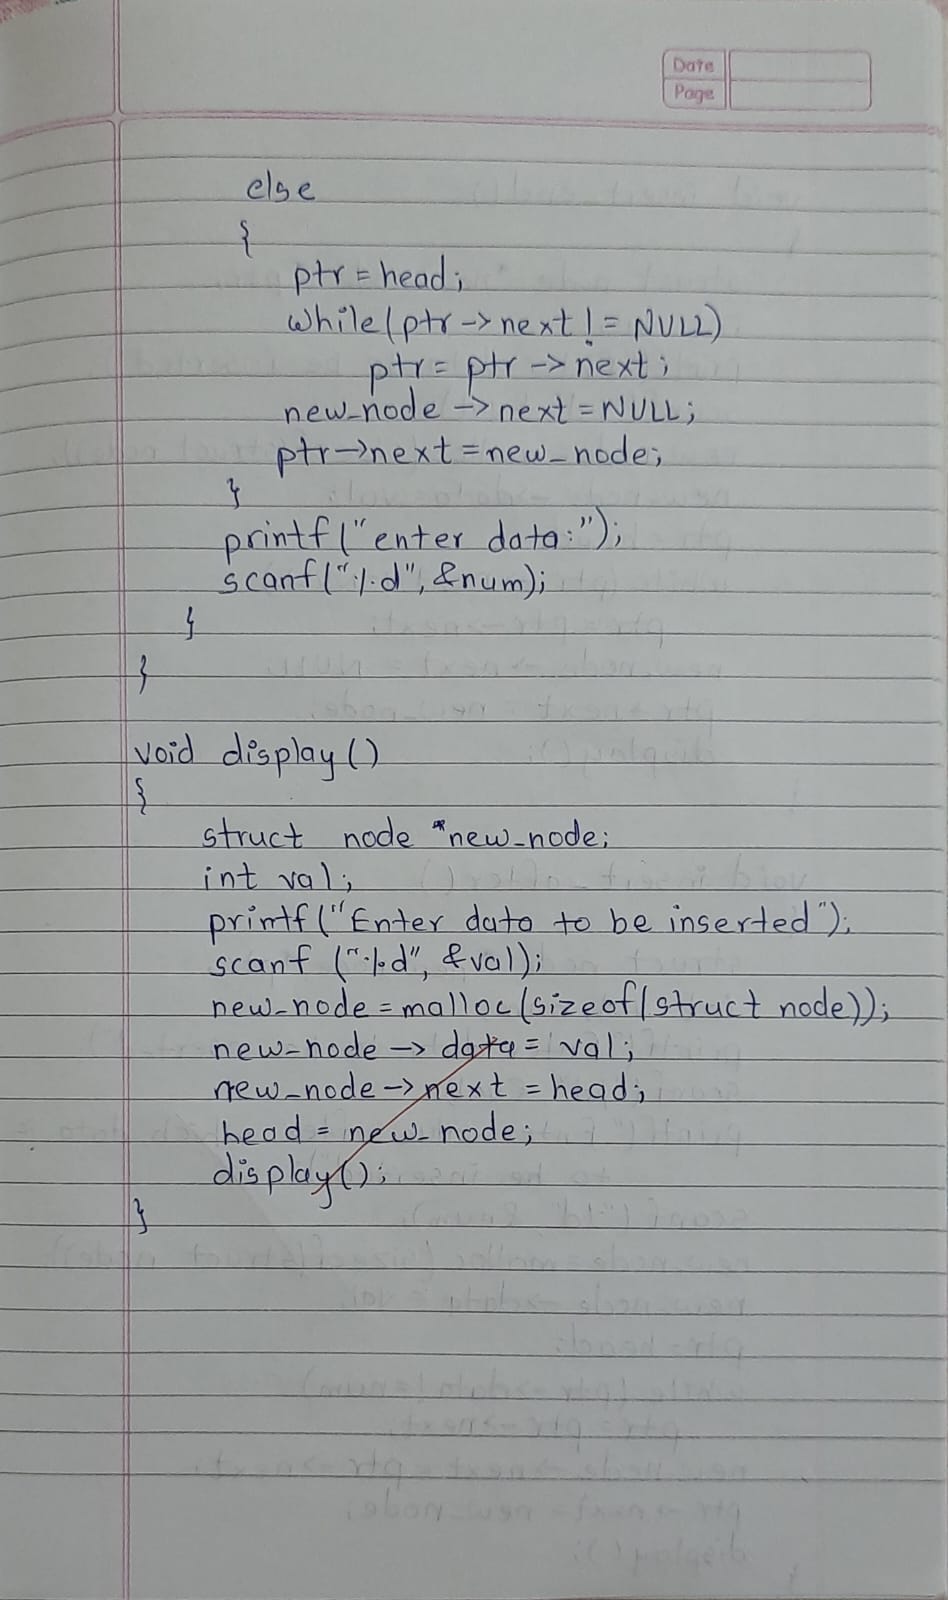 Date
Page
else
{
ptr = head;
while(ptr -> next != NULL)
ptr = ptr -> next;
new_node -> next = NULL;
ptr->next = new_node;
}
printf("enter data:");
scanf("%d", &num);
}
}
void display()
{
struct node *new_node;
int val;
printf("Enter data to be inserted");
scanf ("%d", &val);
new_node = malloc(sizeof(struct node));
new_node -> data = val;
new_node -> next = head;
head = new_node;
display();
}